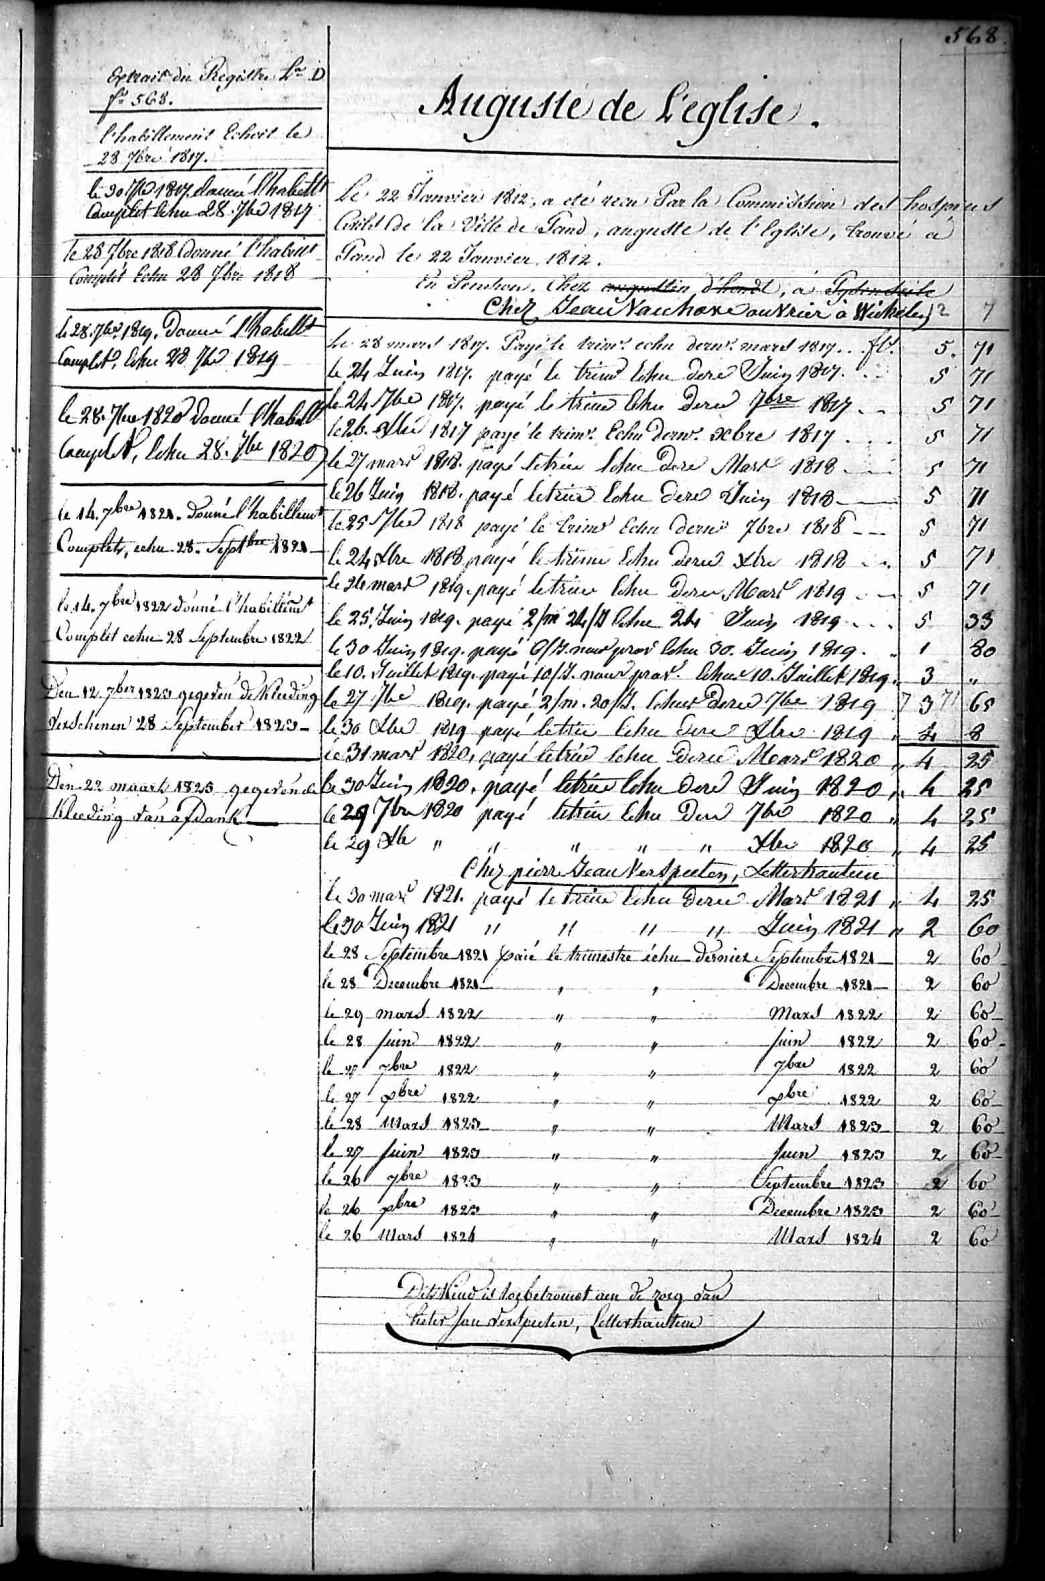 568
Extrait du Registre Lra D
fo 568.
l'habillement Echoit le
28 7bre 1817.
le 30 7bre 1817 donné l'habillt
Complet Echu 28. 7bre 1817
le 28 7bre 1818 donné l'habillt
Complet Echu 28 7bre 1818
le 28. 7bre 1819. Donné l'habillt
Complet. Echu 28 7bre 1819
le 28. 7bre 1820 donné l'habillt
Complet, Echu 28. 7bre 1820
le 14. 7bre 1821. Donné l'habillemt
Complet, echu 28. Septbre 1821
le 14. 7bre 1822 donné l'habillemt
Complet echu 28 Septembre 1822
Den 12. 7ber 1823 gegeven de Kleeding
Verschenen 28 September 1823
Den 22 maart 1825 gegeven de
Kleeding van afdank
Auguste de L'eglise.
Le 22 Janvier 1812, a été reçu Par la Commission des hospices
Civils de la Ville de Gand, auguste de l'Eglise, trouvé à
Gand le 22 Janvier 1812.
En Pension. Chez augustin d'hondt, à
Chez Jean Vanhove ouvrier à Wichelen 12 7
Le 28 mars 1817. Payé le trimr. echu dernr. mars 1817 .. fls. 5. 71
le 24 Juin 1817. payé le trimr Echu dere Juin 1817. 5 71
le 24 7bre 1817. payé le trime Echu dere 7bre 1817 5 71
le 26. Xbre 1817 payé le trimr. Echu dernr. Xbre 1817 5 71
le 27 mars 1818. payé le trime Echu dere Mars 1818 5 71
le 26 Juin 1818. payé le trime Echu dere Juin 1818 5 71
le 25 7bre 1818 payé le trimr Echu dernr 7bre 1818 5 71
le 24 Xbre 1818 payé le trime Echu dere Xbre 1818 5 71
le 26 mars 1819. payé le trime Echu dere Mars 1819 5 71
le 25. Juin 1819. payé 2/m 24/J Echu 24 Juin 1819 5 33
le 30 Juin 1819. payé 6/J. nour prov Echu 30. Juin 1819. " 1 80
le 10. Juillet 1819. payé 10/J. nour prov. Echu 10. Juillet 1819. 3 "
le 27 7bre 1819. payé 2/m. 20/J. Echu Dere 7bre 1819 7 3 71 65
le 30 Xbre 1819 payé le trim Echu Dere Xbre 1819 " 4 8
le 31 mars 1820, payé le trim Echu Dere Mars 1820 " 4 25
le 30 Juin 1820. payé le trim Echu Dere Juin 1820 " 4 25
le 29 7bre 1820 payé le trim Echu Dere 7bre 1820 " 4 25
le 29 Xbre " " " " " Xbre 1820 " 4 25
Chez pierre Jean Verspeeten, Letterhautem
le 30 mars 1821. payé le trim Echu Dere Mars 1821 " 4 25
le 30 Juin 1821 " " " " Juin 1821 " 2 60
le 28 Septembre 1821 paié le trimestre échu dernier Septembre 1821 2 60
le 28 Decembre 1821 " " Decembre 1821 2 60
le 29 mars 1822 " " Mars 1822 2 60
le 28 Juin 1822 " " Juin 1822 2 60
le 27 7bre 1822 " " 7bre 1822 2 60
le 27 Xbre 1822 " " Xbre 1822 2 60
le 28 Mars 1823 " " Mars 1823 2 60
le 27 Juin 1823 " " Juin 1823 2 60
le 26 7bre 1823 " " Septembre 1823 2 60
le 26 Xbre 1823 " " Decembre 1823 2 60
le 26 Mars 1824 " " Mars 1824 2 60
Dit Kind is toebetrouwt aen de zorg van
Pieter Jan Verspeeten, Letterhautem